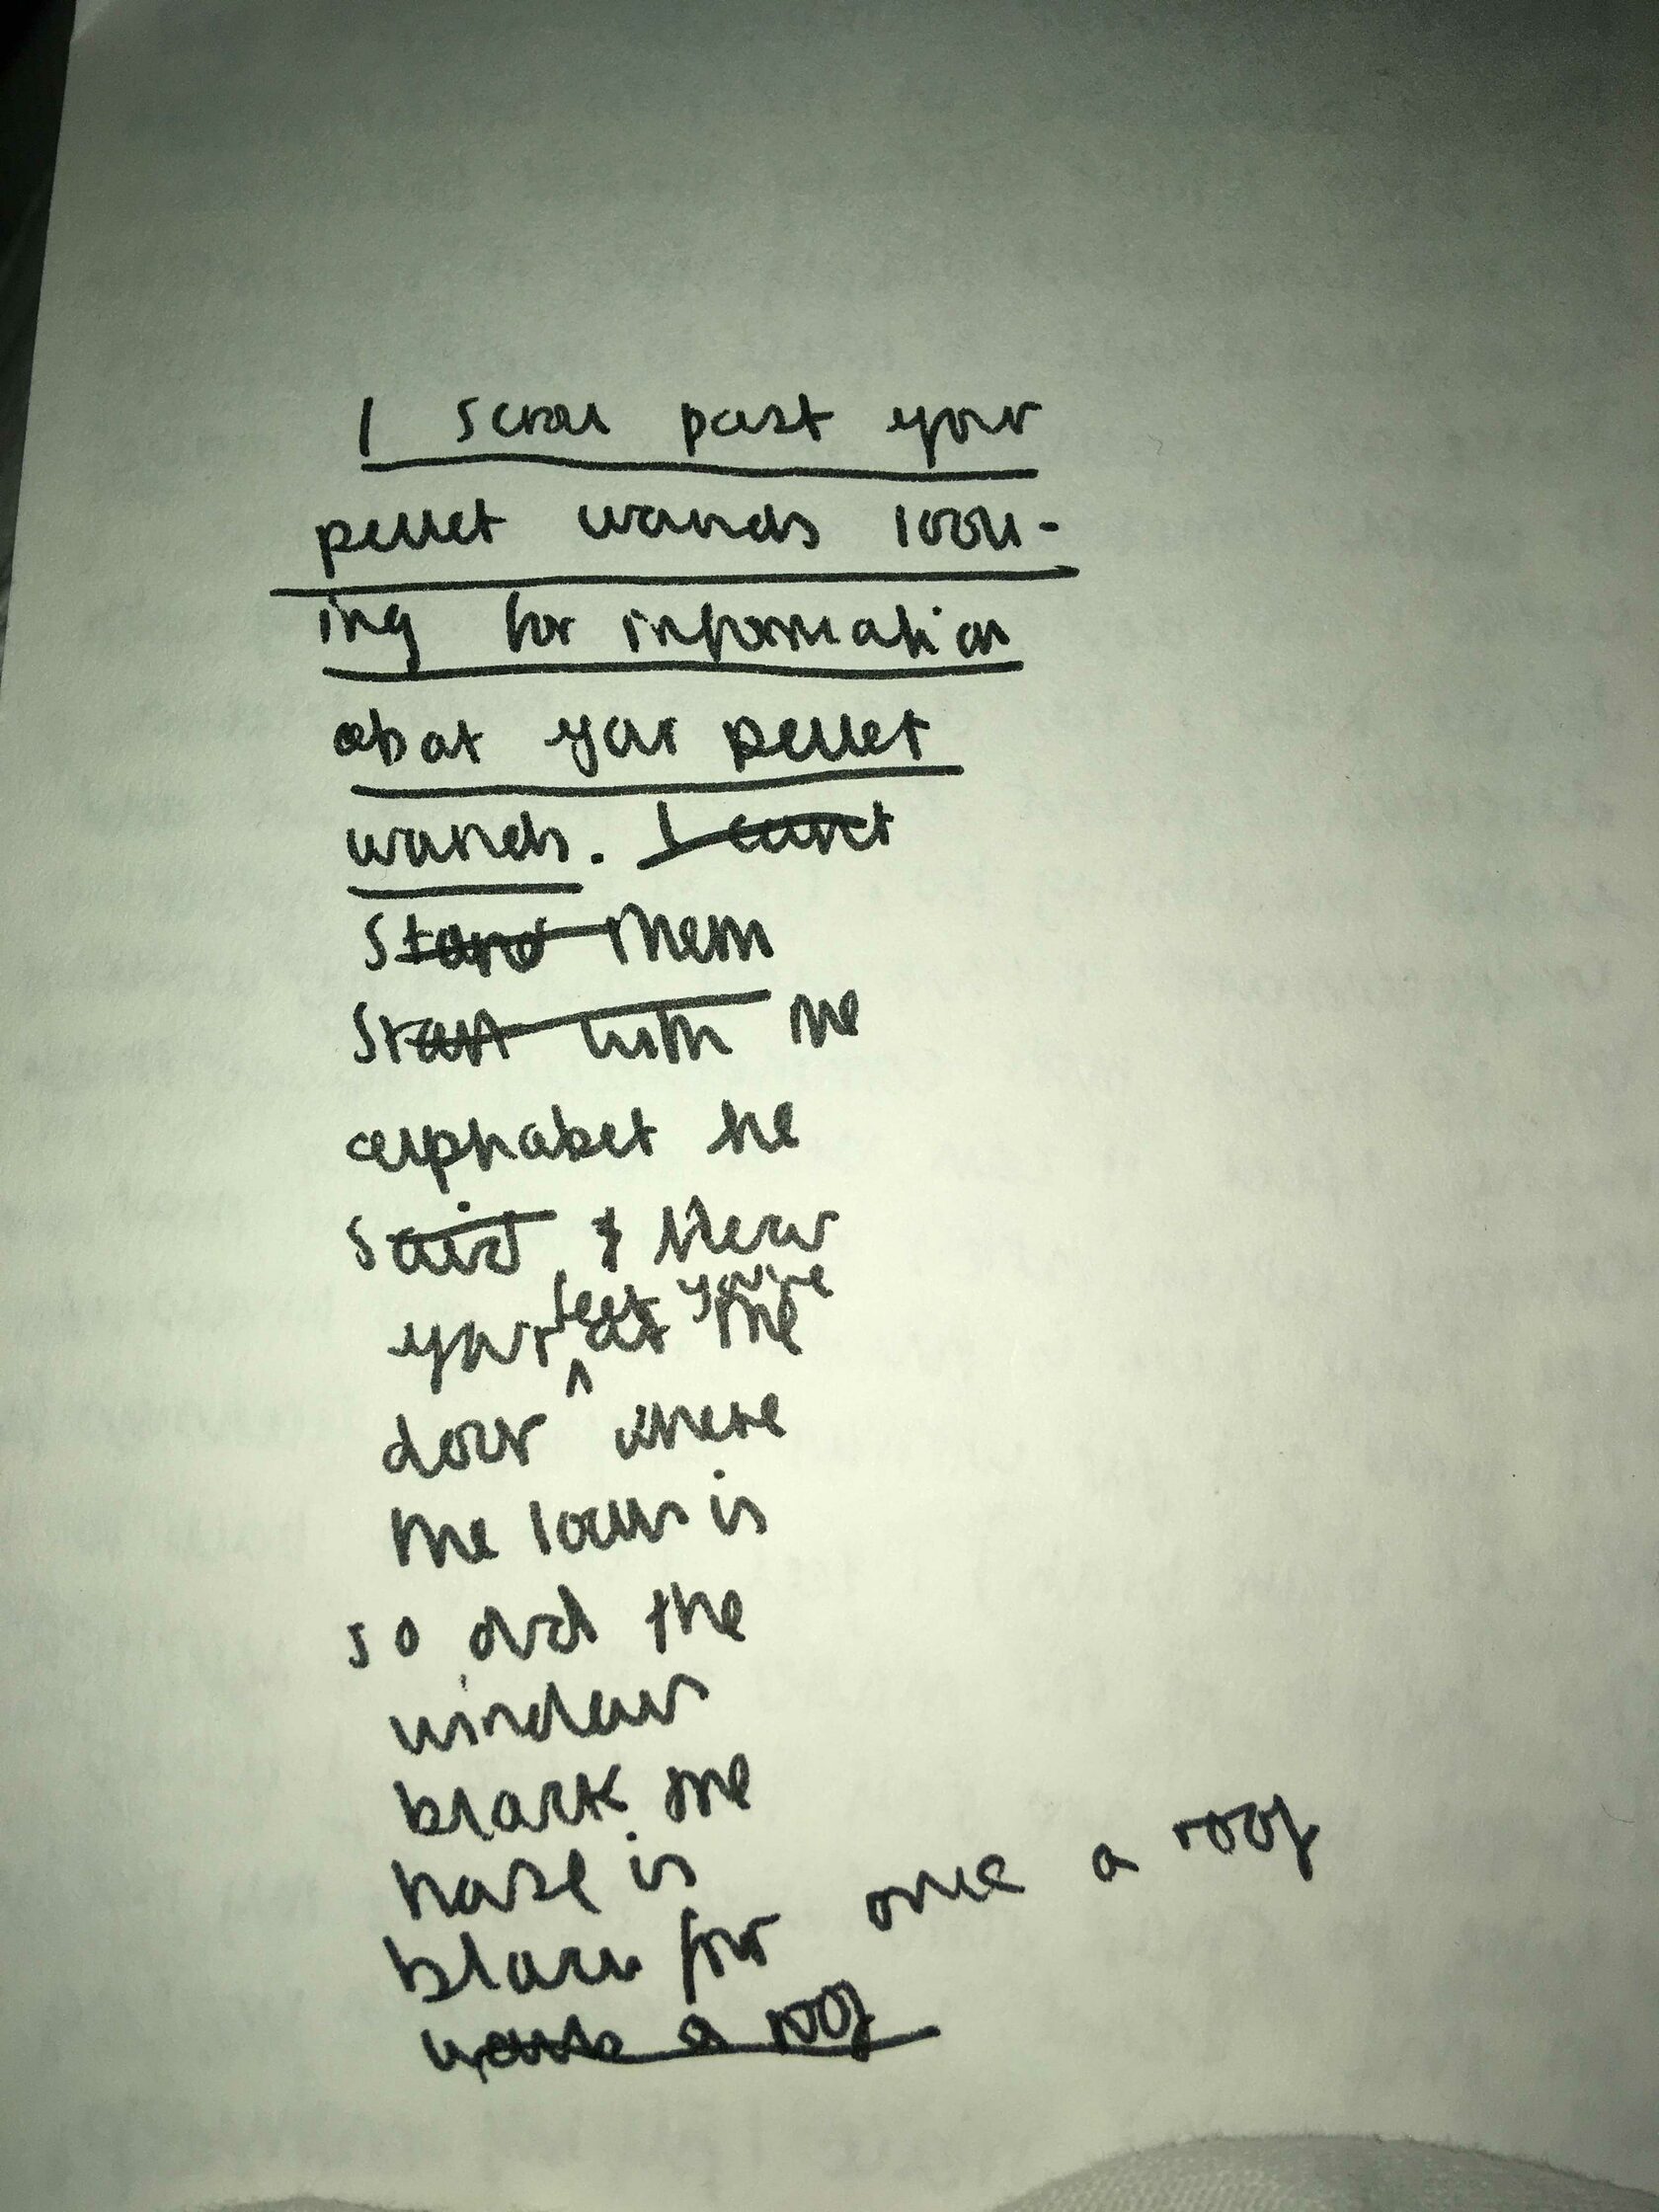 I scroll past your
pellet wands look-
ing for information
about your pellet
wounds. I can't
stand them
start with the
alphabet he
said & blew
your feet you're
at the
door where
the lock is
so old the
window
black the
house is
black for once a roof
wants a roof